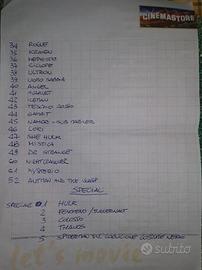 CINEMASTORE
34 ROGUE
35 KRAVEN
36 MEFISTO
37 CICLOPE
38 ULTRON
39 UOMO SABBIA
40 ANGEL
41 MAGNETO
42 ICEMAN
43 TESCHIO ROSSO
44 GAMBIT
45 NAMOR - SUB MARINER
46 LOKI
47 SHE HULK
48 MISTICA
49 DR STRANGE
50 NIGHTCRAWLER
51 MYSTERIO
52 ANTMAN AND THE WASP
SPECIAL
SPECIALE 1 HULK
2 FENOMENO/JUGGERNAUT
3 COLOSSO
4 THANOS
5 SPIDERMAN
let's movie
subito